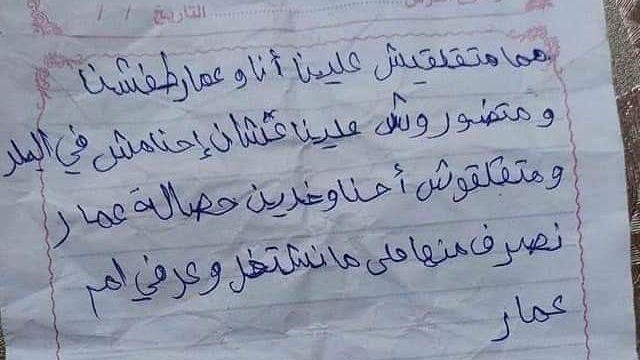 التاريخ / /
مما متقلقيش علينا أنا وعمار طفشنا
ومتضوروش علينا عشان إحنا مش في البلد
ومتقلقوش أحنا وخدين حصالة عمار
نصرف منها على ما نشتغل وعرفي ام
عمار